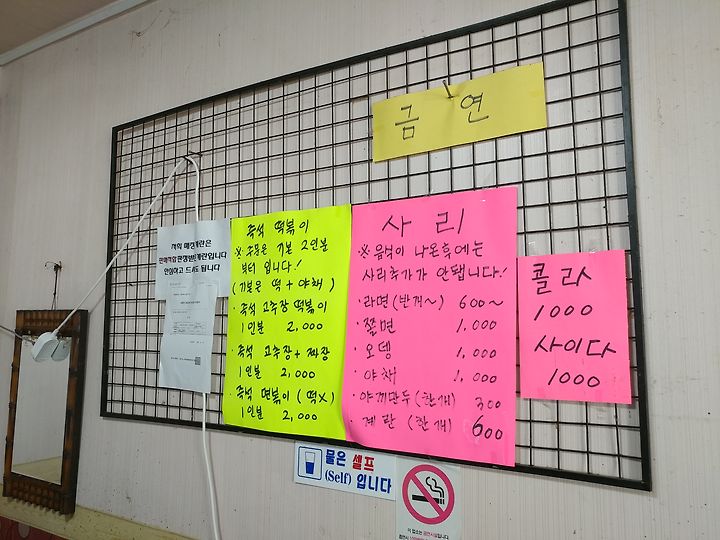 금 연
저희 매장계란은
판매적합판정받은계란입니다
안심하고 드셔도 됩니다
즉석 떡볶이
※ 주문은 기본 2인분
부터 입니다!
(기본은 떡 + 야채)
· 즉석 고추장 떡볶이
1인분 2,000
· 즉석 고추장 + 짜장
1인분 2,000
· 즉석 면볶이 (떡X)
1인분 2,000
사 리
※ 음식이 나온후에는
사리추가가 안됍니다!
· 라면 (반개~) 600~
· 쫄면 1,000
· 오뎅 1,000
· 야채 1,000
· 야끼만두 (한개) 300
· 계란 (한개) 600
콜라
1000
사이다
1000
물은 셀프
(Self) 입니다